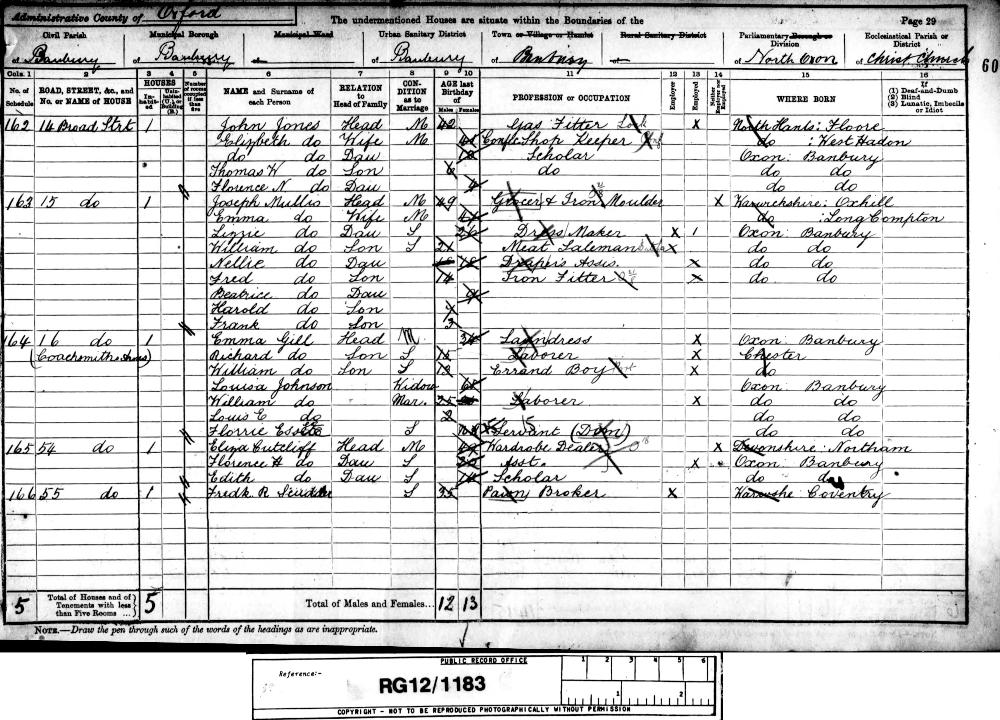 Administrative County of Oxford
The undermentioned Houses are situate within the Boundaries of the
Page 29
Civil Parish
of Banbury
Municipal Borough
of Banbury
Municipal Ward
of
Urban Sanitary District
of Banbury
Town or Village or Hamlet
of Banbury
Rural Sanitary District
of
Parliamentary Borough or Division
of North Oxon
Ecclesiastical Parish or District
of Christ Church
60
Cols. 1 2 3 4 5 6 7 8 9 10 11 12 13 14 15 16
No. of Schedule
ROAD, STREET, &c., and No. or NAME of HOUSE
HOUSES
Inhabited
Uninhabited (U.) or Building (B.)
Number of rooms occupied if less than five
NAME and Surname of each Person
RELATION to Head of Family
CONDITION as to Marriage
AGE last Birthday of
Males Females
PROFESSION or OCCUPATION
Employer
Employed
Neither Employer nor Employed
WHERE BORN
If
(1) Deaf-and-Dumb
(2) Blind
(3) Lunatic, Imbecile or Idiot
162 14 Broad Strt 1 John Jones Head M 42 Gas Fitter X North Hants: Floore
Elizbeth do Wife M Confec Shop Keeper do : West Hadon
do do Dau 10 Scholar Oxon: Banbury
Thomas W do Son 6 do do do
Florence N do Dau 4 do do
163 15 do 1 Joseph Mullis Head M 49 Grocer & Iron Moulder X Warwickshire: Oxhill
Emma do Wife M do : Long Compton
Lizzie do Dau S 26 Dress Maker X Oxon Banbury
William do Son S 21 Meat Saleman X do do
Nellie do Dau 18 Draper's Assis. X do do
Fred do Son 14 Iron Fitter X do do
Beatrice do Dau 9
Harold do Son
Frank do Son 3
164 16 do 1 Emma Gill Head M 34 Laundress X Oxon: Banbury
(Coachsmiths Arms) Richard do Son S 15 Laborer X Chester
William do Son S 13 Errand Boy X do
Louisa Johnson Widow Oxon: Banbury
William do Mar. 25 Laborer X do do
Louis E do 2 do do
Florrie S Servant (Dom) do do
165 54 do 1 Eliza Cutcliff Head M 49 Wardrobe Dealer X Devonshire: Northam
Florence H do Dau S 20 Asst. X Oxon: Banbury
Edith do Dau S 14 Scholar do do
166 55 do 1 Fredk. R S 35 Pawn Broker X Coventry
5 Total of Houses and of Tenements with less than Five Rooms 5
Total of Males and Females... 12 13
NOTE.—Draw the pen through such of the words of the headings as are inappropriate.
PUBLIC RECORD OFFICE
1 2 3 4 5 6
Reference:-
RG12/1183
1 2
COPYRIGHT - NOT TO BE REPRODUCED PHOTOGRAPHICALLY WITHOUT PERMISSION